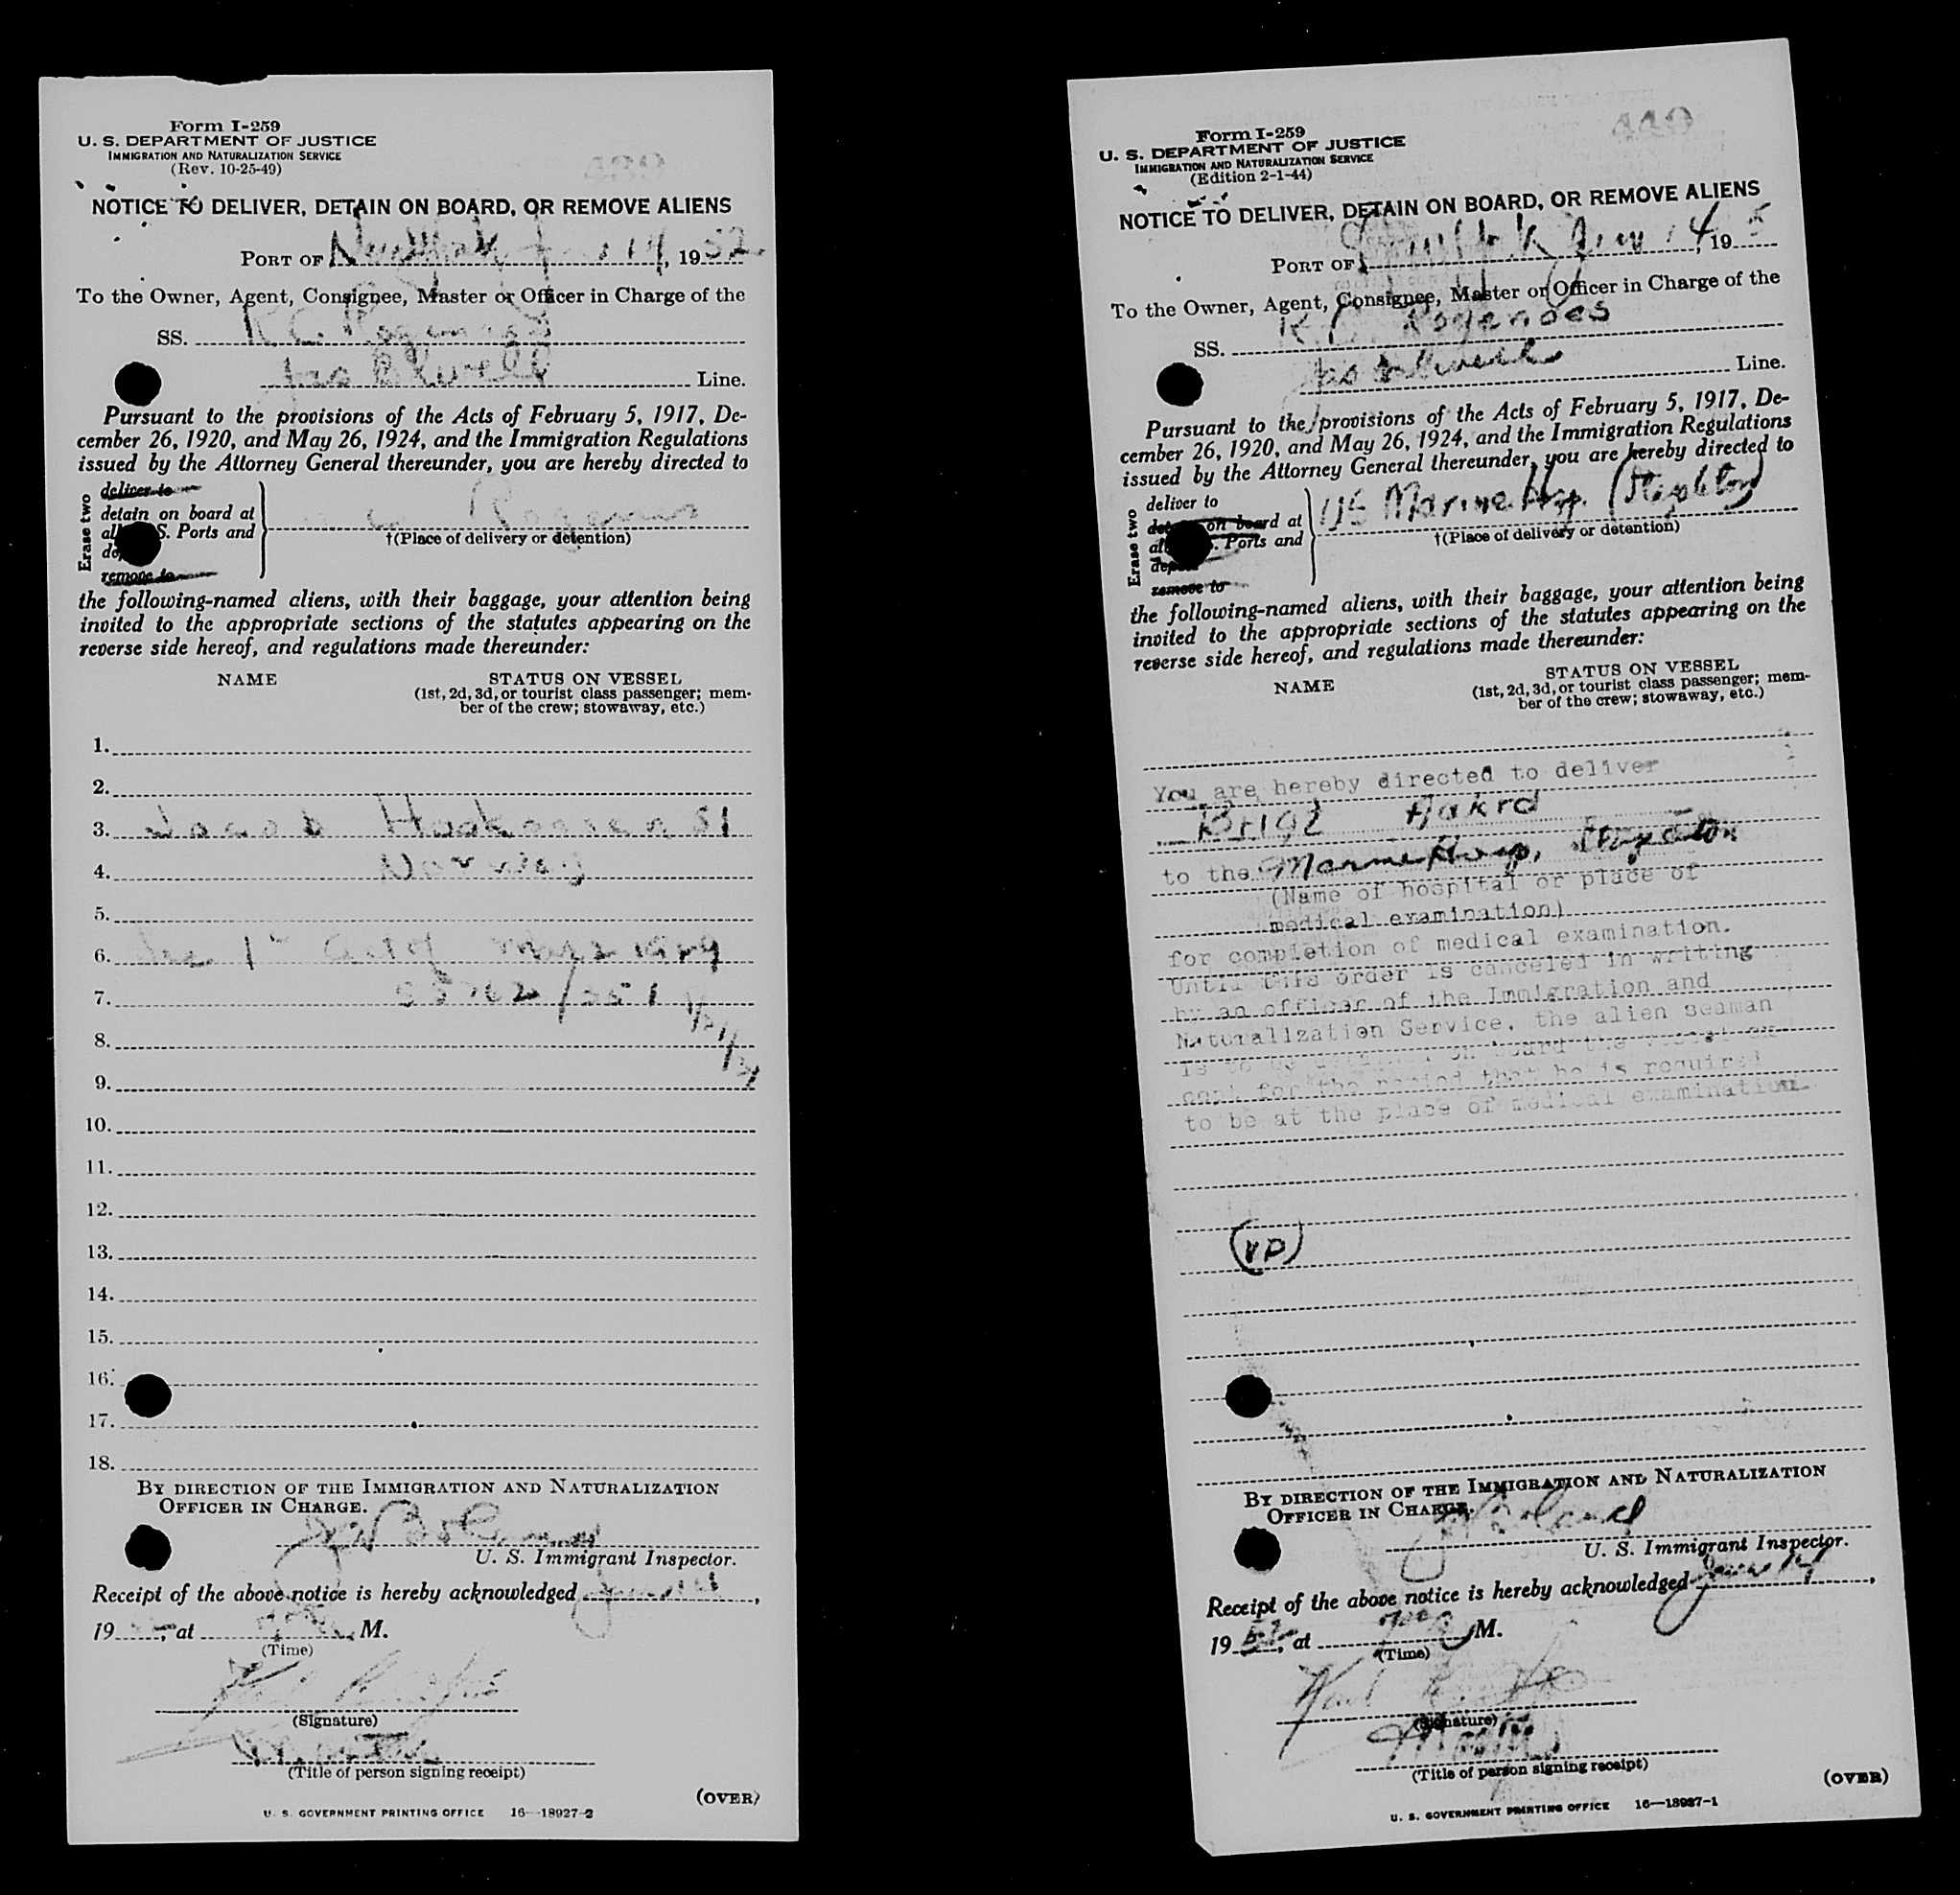 Form I-259
U. S. DEPARTMENT OF JUSTICE
IMMIGRATION AND NATURALIZATION SERVICE
(Rev. 10-25-49)
439
NOTICE TO DELIVER, DETAIN ON BOARD, OR REMOVE ALIENS
PORT OF New York 14, 1952.
To the Owner, Agent, Consignee, Master or Officer in Charge of the
SS.
Line.
Pursuant to the provisions of the Acts of February 5, 1917, De-
cember 26, 1920, and May 26, 1924, and the Immigration Regulations
issued by the Attorney General thereunder, you are hereby directed to
Erase two
deliver to
detain on board at
all S. Ports and
remove to
†(Place of delivery or detention)
the following-named aliens, with their baggage, your attention being
invited to the appropriate sections of the statutes appearing on the
reverse side hereof, and regulations made thereunder:
NAME STATUS ON VESSEL
(1st, 2d, 3d, or tourist class passenger; mem-
ber of the crew; stowaway, etc.)
1.
2.
3. Jacob
4. Norway
5.
6.
7.
8.
9.
10.
11.
12.
13.
14.
15.
16.
17.
18.
BY DIRECTION OF THE IMMIGRATION AND NATURALIZATION
OFFICER IN CHARGE.
U. S. Immigrant Inspector.
Receipt of the above notice is hereby acknowledged
19 , at M.
(Time)
(Signature)
(Title of person signing receipt)
(OVER)
U. S. GOVERNMENT PRINTING OFFICE 16—18927-2
Form I-259
U. S. DEPARTMENT OF JUSTICE
IMMIGRATION AND NATURALIZATION SERVICE
(Edition 2-1-44)
440
NOTICE TO DELIVER, DETAIN ON BOARD, OR REMOVE ALIENS
PORT OF 14, 195
To the Owner, Agent, Consignee, Master or Officer in Charge of the
SS.
Line.
Pursuant to the provisions of the Acts of February 5, 1917, De-
cember 26, 1920, and May 26, 1924, and the Immigration Regulations
issued by the Attorney General thereunder, you are hereby directed to
Erase two
deliver to
on board at
Ports and
remove to
US Marine Hosp. (Stapleton)
†(Place of delivery or detention)
the following-named aliens, with their baggage, your attention being
invited to the appropriate sections of the statutes appearing on the
reverse side hereof, and regulations made thereunder:
NAME STATUS ON VESSEL
(1st, 2d, 3d, or tourist class passenger; mem-
ber of the crew; stowaway, etc.)
You are hereby directed to deliver
to the Marine Hosp, Stapleton
(Name of hospital or place of
medical examination)
for completion of medical examination.
Until this order is canceled in writing
by an officer of the Immigration and
Naturalization Service, the alien seaman
is to be on board the vessel ex-
cept for the period that he is required
to be at the place of medical examination.
BY DIRECTION OF THE IMMIGRATION AND NATURALIZATION
OFFICER IN CHARGE.
U. S. Immigrant Inspector.
Receipt of the above notice is hereby acknowledged
1952, at M.
(Time)
(Signature)
Master
(Title of person signing receipt)
(OVER)
U. S. GOVERNMENT PRINTING OFFICE 16—18927-1